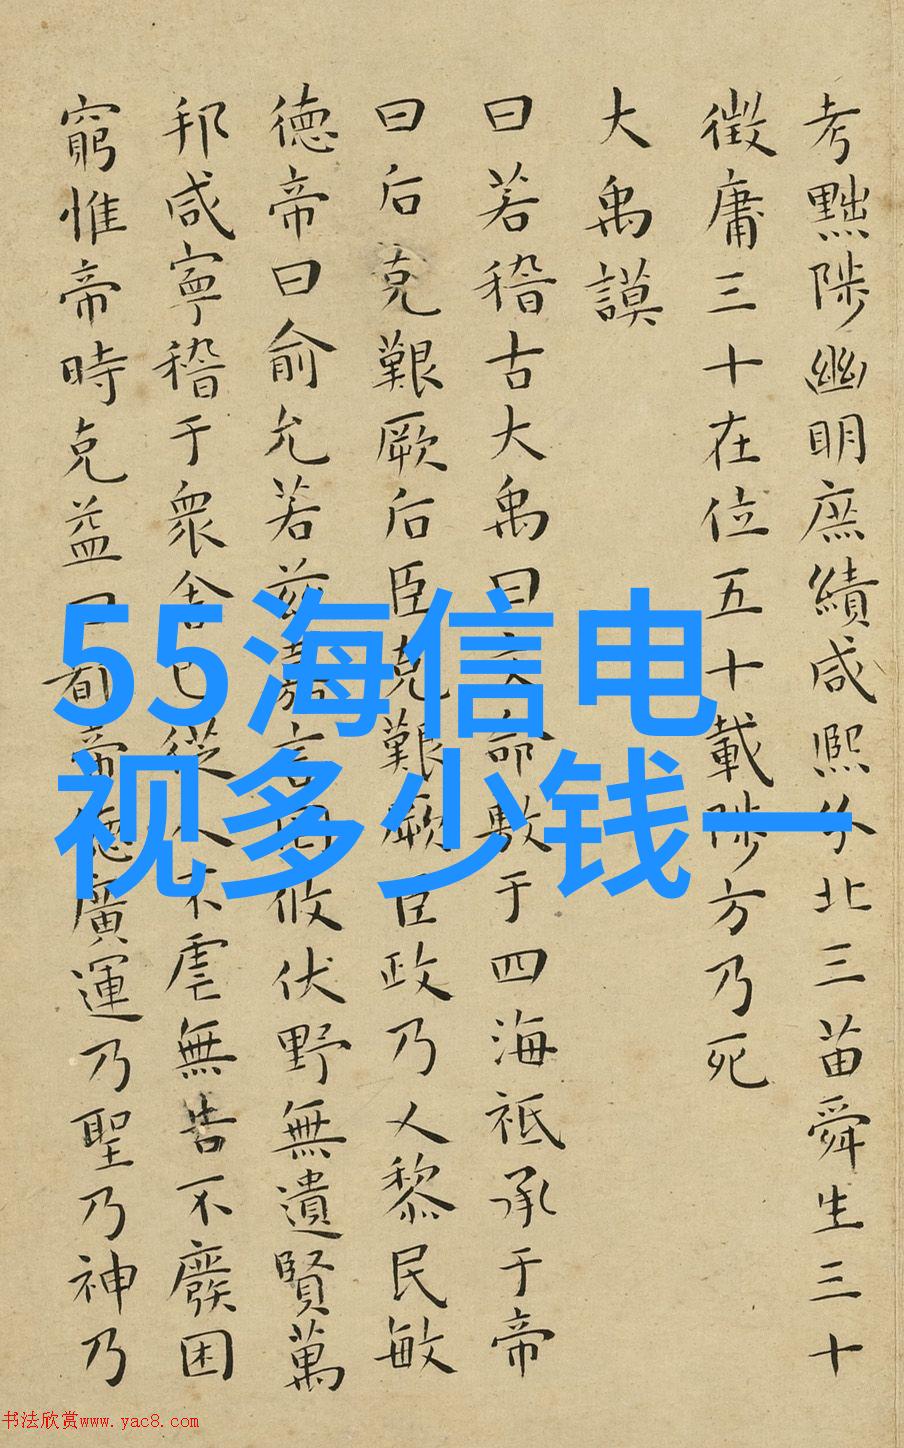 考黜陟幽明庶績咸熙分北三苗舜生三十
徵庸三十在位五十載陟方乃死
大禹謨
曰若稽古大禹曰文命敷于四海祗承于帝
曰后克艱厥后臣克艱厥臣政乃乂黎民敏
德帝曰俞允若茲嘉言罔攸伏野無遺賢萬
邦咸寧稽于衆舍己從人不虐無告不廢困
窮惟帝時克益曰都帝德廣運乃聖乃神乃
55海信电
视多少钱一
书法欣赏www.yac8.com